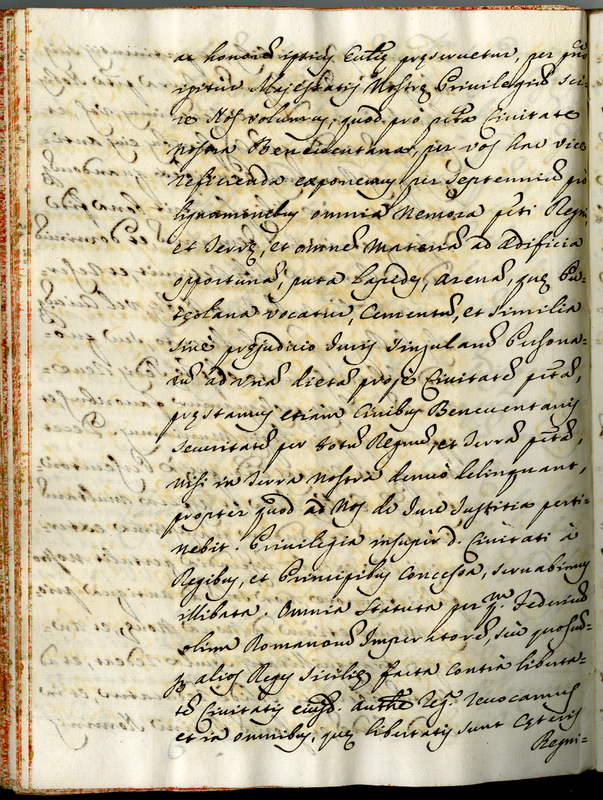 ac honorẽ ipsius Eccłię pręservetur, per pñs
ipsius Majestatis Nostrę Privilegiũ sci-
re Nos volumus; quod pro pcta Civitate
Nostra Beneventana, per vos hac vice
Reficienda exponemus per septenniũ pro
lignaminebus omnia Nemora pcti Regni,
et Terrę, et omnem Materiã ad ædificia
opportunã, puta Lapides, arenã, quę Pu-
zęolana vocatur, Cementũ, et similia
sine pręjudicio Juris singularũ Persona-
rũ ad unã dietã prope Civitatẽ pctã,
pręstamus etiam Civibus Beneventanis
securitatẽ per totũ Regnũ, et Terrã pctã,
nisi in Terra nostra denuò delinquant,
propter quod ad Nos de Jure Justitiæ perti-
nebit. Privilegia insuper d. Civitati à
Regibus, et Principibus concessa, servabimus
illibata. Omnia statuta per q.m Federicũ
olim Romanorũ Imperatorẽ, seu quoscũ-
q; alios Reges Sicilię facta contrà liberta-
tẽ Civitatis ejusd. aucthẽ Reg.ª revocamus
et in omnibus, quę libertatis sunt Cęteris
Regni-